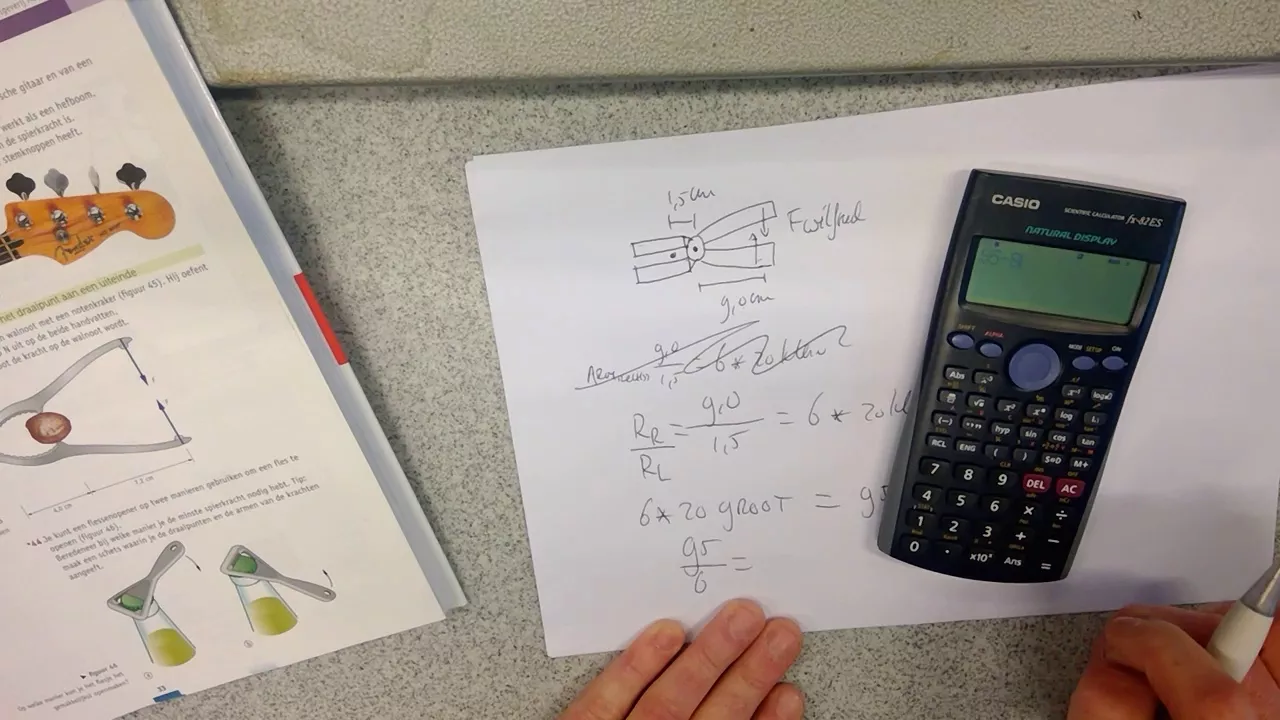 sche gitaar en van een
werkt als een hefboom.
n de spierkracht is.
stemknoppen heeft.
Fender
het draaipunt aan een uiteinde
n walnoot met een notenkraker (figuur 45). Hij oefent
N uit op de beide handvatten.
oot de kracht op de walnoot wordt.
4,0 cm
*44 Je kunt een flessenopener op twee manieren gebruiken om een fles te
openen (figuur 46).
Beredeneer bij welke manier je de minste spierkracht nodig hebt. Tip:
maak een schets waarin je de draaipunten en de armen van de krachten
aangeeft.
► figuur 46
Op welke manier kun je het flesje het
gemakkelijkst openmaken?
33
1,5 cm
Fwilfred
9,0 cm
9,0
1,5
6 * 20
RR = 9,0 = 6 * 20
RL 1,5
6 * 20 GROOT = 95
95
6 =
CASIO
SCIENTIFIC CALCULATOR fx-82ES
NATURAL DISPLAY
SHIFT ALPHA MODE SETUP ON
Abs x³ x⁻¹ logₐ
√ x² log ln
(−) hyp sin cos tan
RCL ENG ( ) S⇔D M+
7 8 9 DEL AC
4 5 6 × ÷
1 2 3 + −
0 . ×10ˣ Ans =